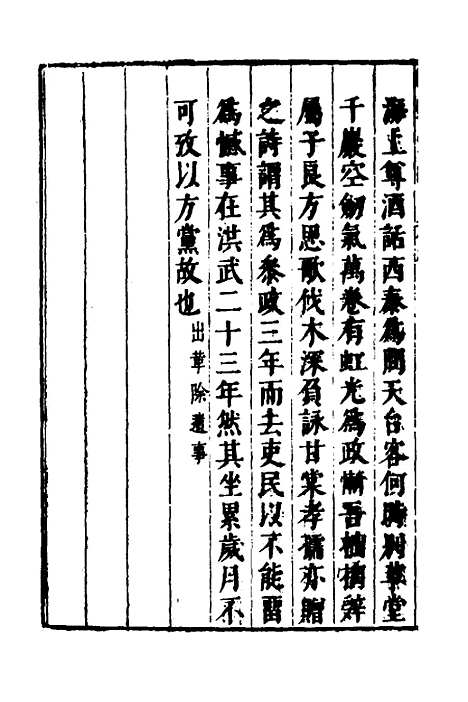 海上尊酒話西秦為問天台客何時別草堂
千巖空劒氣萬卷有虹光為政慚吾拙摛辭
屬子良方思歌伐木深負詠甘棠孝孺亦贈
之詩謂其為叅政三年而去吏民以不能留
為憾事在洪武二十三年然其坐累歲月不
可攷以方黨故也出革除遺事